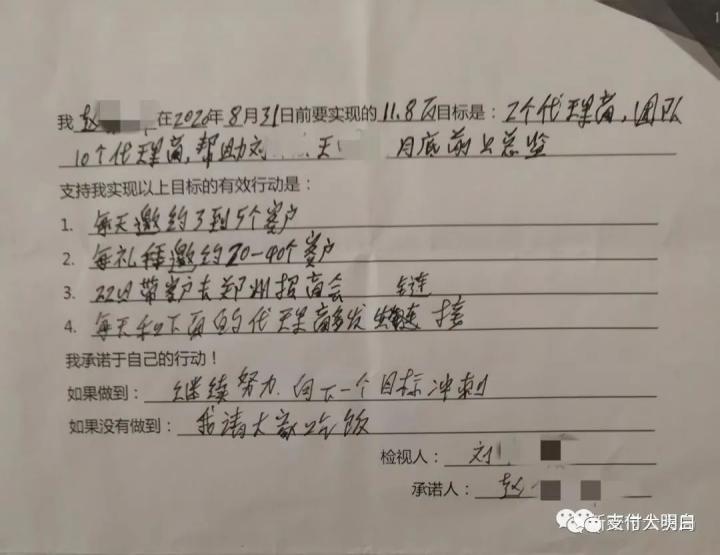 我 赵 在2020年8月31日前要实现的11.8万目标是：2个代理商，团队
10个代理商，帮助刘 天 月底前上总监
支持我实现以上目标的有效行动是：
1. 每天邀约3到5个客户
2. 每礼拜邀约20-40个客户
3. 22日带客户去郑州招商会 链
4. 每天和下面的代理商多发 链接
我承诺于自己的行动！
如果做到：继续努力.向下一个目标冲刺
如果没有做到：我请大家吃饭
检视人：刘
承诺人：赵
新支付大明白